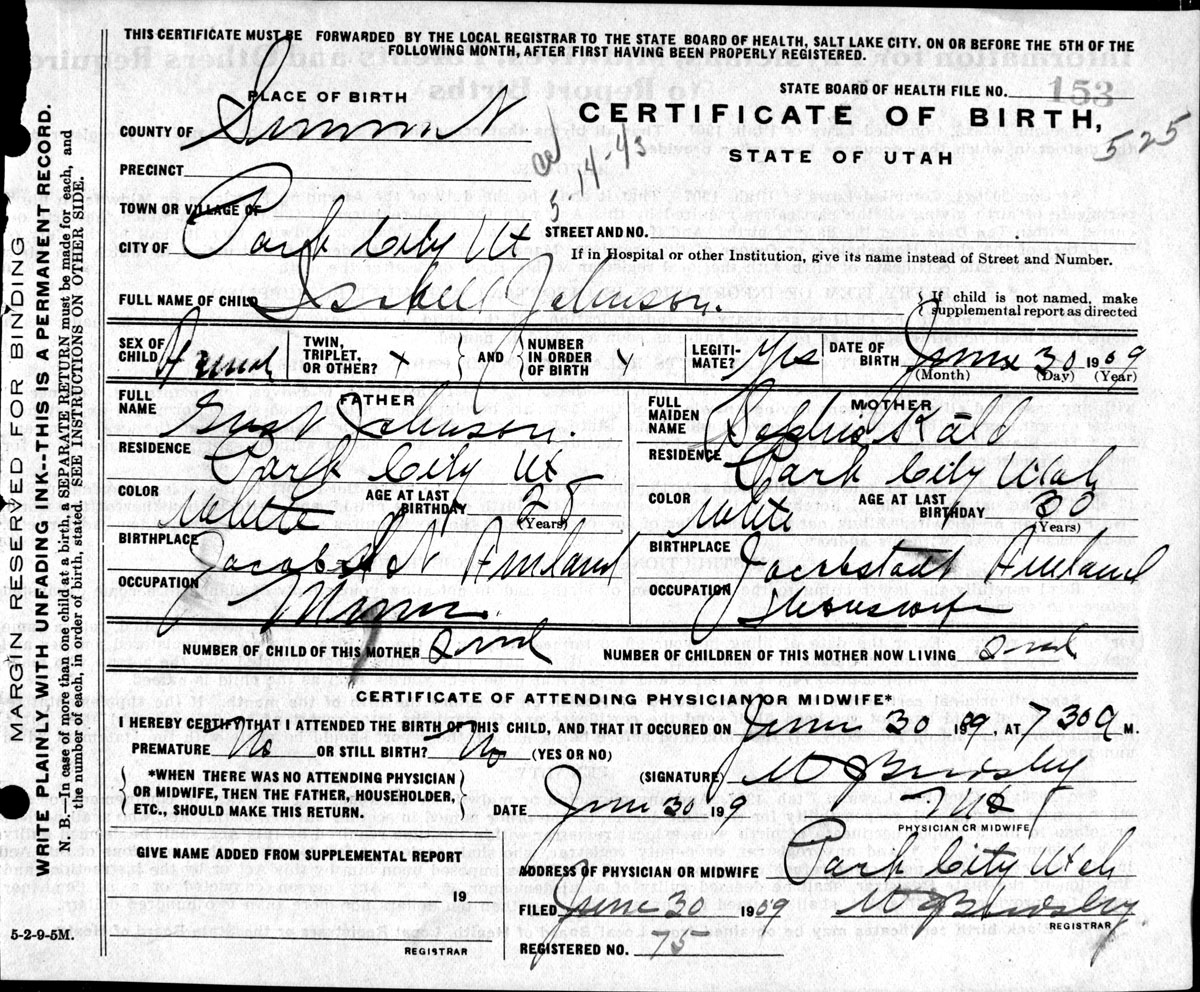 THIS CERTIFICATE MUST BE FORWARDED BY THE LOCAL REGISTRAR TO THE STATE BOARD OF HEALTH, SALT LAKE CITY, ON OR BEFORE THE 5TH OF THE
FOLLOWING MONTH, AFTER FIRST HAVING BEEN PROPERLY REGISTERED.
STATE BOARD OF HEALTH FILE NO. 153
PLACE OF BIRTH
CERTIFICATE OF BIRTH,
525
COUNTY OF Summit
5 14-43
STATE OF UTAH
PRECINCT
TOWN OR VILLAGE OF
CITY OF Park City Ut
STREET AND NO.
If in Hospital or other Institution, give its name instead of Street and Number.
FULL NAME OF CHILD Isabell Johnson.
{If child is not named, make
supplemental report as directed
SEX OF CHILD Femal
TWIN, TRIPLET, OR OTHER? x
{AND} {NUMBER IN ORDER OF BIRTH x
LEGITIMATE? Yes
DATE OF BIRTH June 30 1909
(Month) (Day) (Year)
FATHER
FULL NAME Gust Johnson.
RESIDENCE Park City Ut
COLOR White
AGE AT LAST BIRTHDAY 28
(Years)
BIRTHPLACE Finland
OCCUPATION Miner
MOTHER
FULL MAIDEN NAME
RESIDENCE Park City Utah
COLOR White
AGE AT LAST BIRTHDAY 30
(Years)
BIRTHPLACE Finland
OCCUPATION Housewife
NUMBER OF CHILD OF THIS MOTHER
NUMBER OF CHILDREN OF THIS MOTHER NOW LIVING
CERTIFICATE OF ATTENDING PHYSICIAN OR MIDWIFE*
I HEREBY CERTIFY THAT I ATTENDED THE BIRTH OF THIS CHILD, AND THAT IT OCCURED ON June 30 1909, AT 7 30 a M.
PREMATURE No OR STILL BIRTH? No (YES OR NO)
*WHEN THERE WAS NO ATTENDING PHYSICIAN
OR MIDWIFE, THEN THE FATHER, HOUSEHOLDER,
ETC., SHOULD MAKE THIS RETURN.
(SIGNATURE)
MD
PHYSICIAN OR MIDWIFE
DATE June 30 1909
GIVE NAME ADDED FROM SUPPLEMENTAL REPORT
19
REGISTRAR
ADDRESS OF PHYSICIAN OR MIDWIFE Park City Utah
FILED June 30 1909
REGISTRAR
REGISTERED NO. 75
5-2-9-5M.
MARGIN RESERVED FOR BINDING
WRITE PLAINLY WITH UNFADING INK--THIS IS A PERMANENT RECORD.
N. B.—In case of more than one child at a birth, a SEPARATE RETURN must be made for each, and
the number of each, in order of birth, stated. SEE INSTRUCTIONS ON OTHER SIDE.